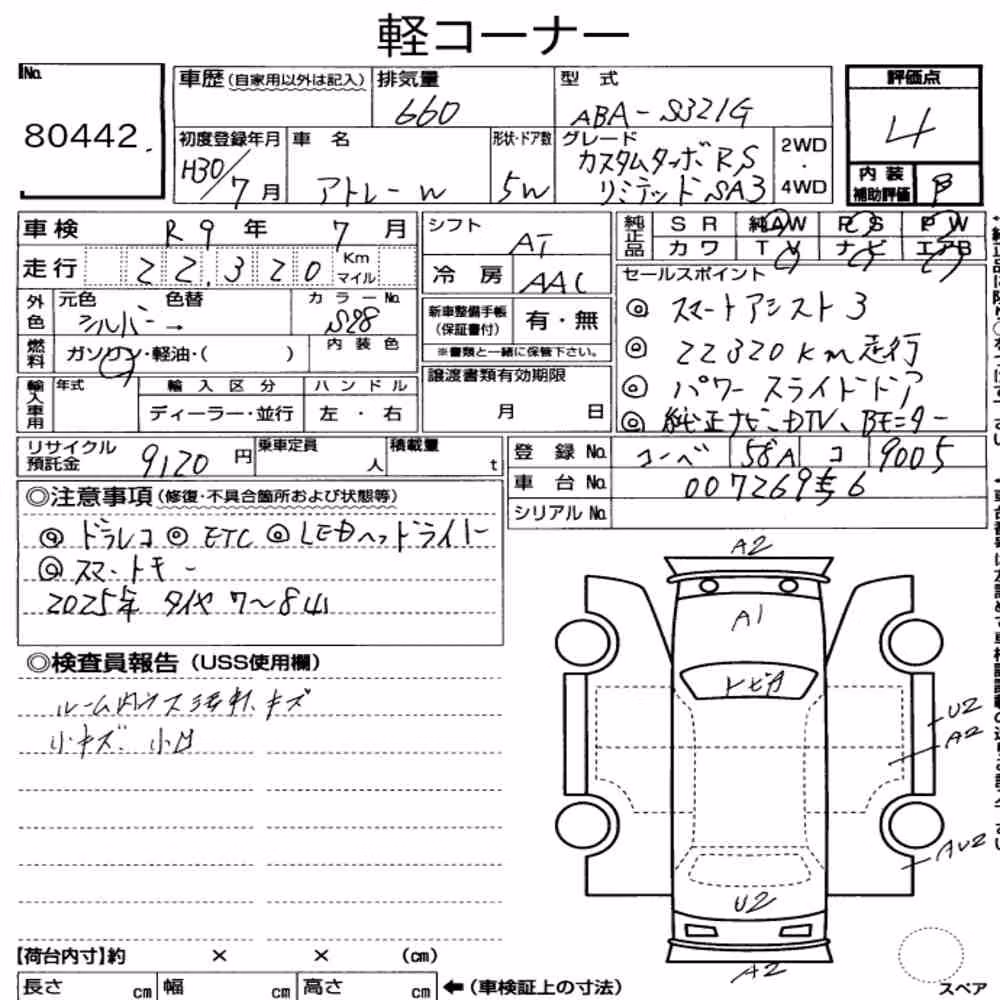 軽コーナー
No.
80442
車歴(自家用以外は記入)
排気量
660
型 式
ABA-S321G
評価点
4
初度登録年月
H30/7月
車 名
アトレーW
形状・ドア数
5W
グレード
カスタムターボRS
リミテッドSA3
2WD
・
4WD
内装
補助評価
B
車検
R9年 7月
シフト
AT
純正品
SR
純AW
PS
PW
カワ
TV
ナビ
エアB
走行
22,320
Km
マイル
冷房
AAC
セールスポイント
◎ スマートアシスト3
◎ 22320km走行
◎ パワースライドドア
◎ 純正ナビ
外色
元色
色替
シルバー→
カラーNo.
S28
新車整備手帳
(保証書付)
有・無
※書類と一緒に保管下さい。
燃料
ガソリン・軽油・( )
内装色
輸入車用
年式
輸入区分
ディーラー・並行
ハンドル
左・右
譲渡書類有効期限
月 日
リサイクル
預託金
9120円
乗車定員
人
積載量
t
登録No.
コーベ 58A コ 9005
車台No.
シリアルNo.
◎注意事項(修復・不具合箇所および状態等)
◎ ドラレコ ◎ ETC ◎ LEDヘッドライト
◎ スマートキー
2025年 タイヤ 7〜8山
◎検査員報告(USS使用欄)
ルーム内
キズ
小キズ 小凹
A2
A1
トビA
U2
A2
AU2
U2
A2
【荷台内寸】約 × × (cm)
長さ cm 幅 cm 高さ cm ←(車検証上の寸法)
スペア